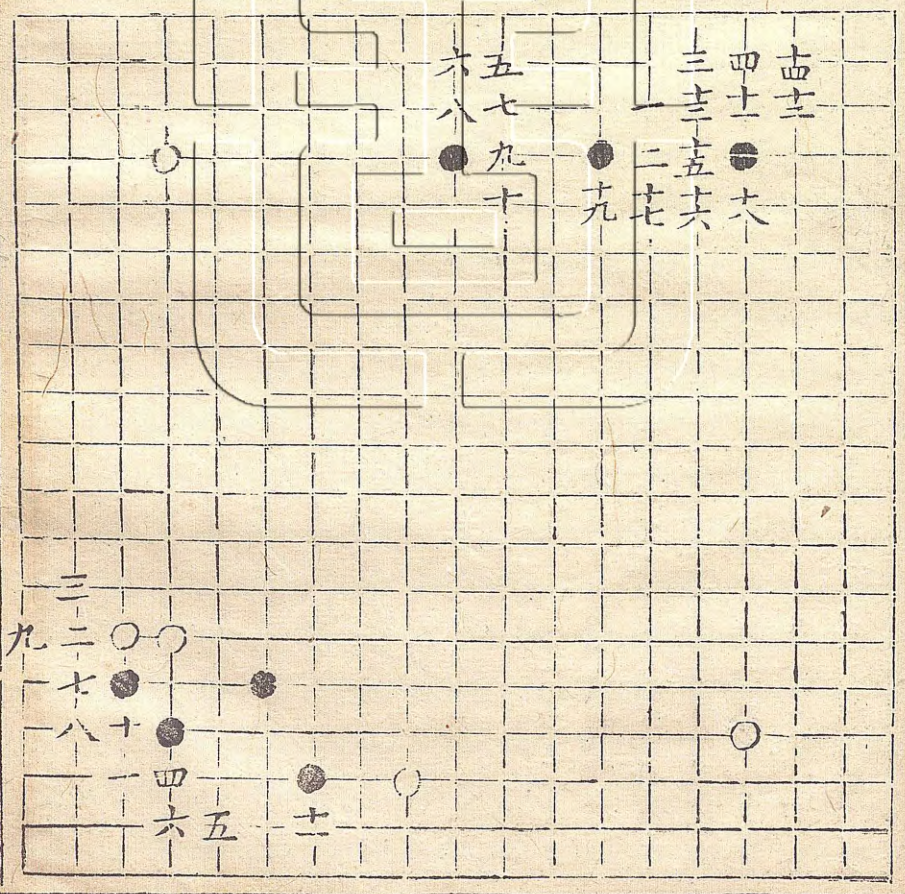 六 五 三 四 十四
八 七 一 十三 十一 十二
九 二 十五
十 十九 十七 十六 十八
三
九 二
七
八 十
一 四
六 五 十一